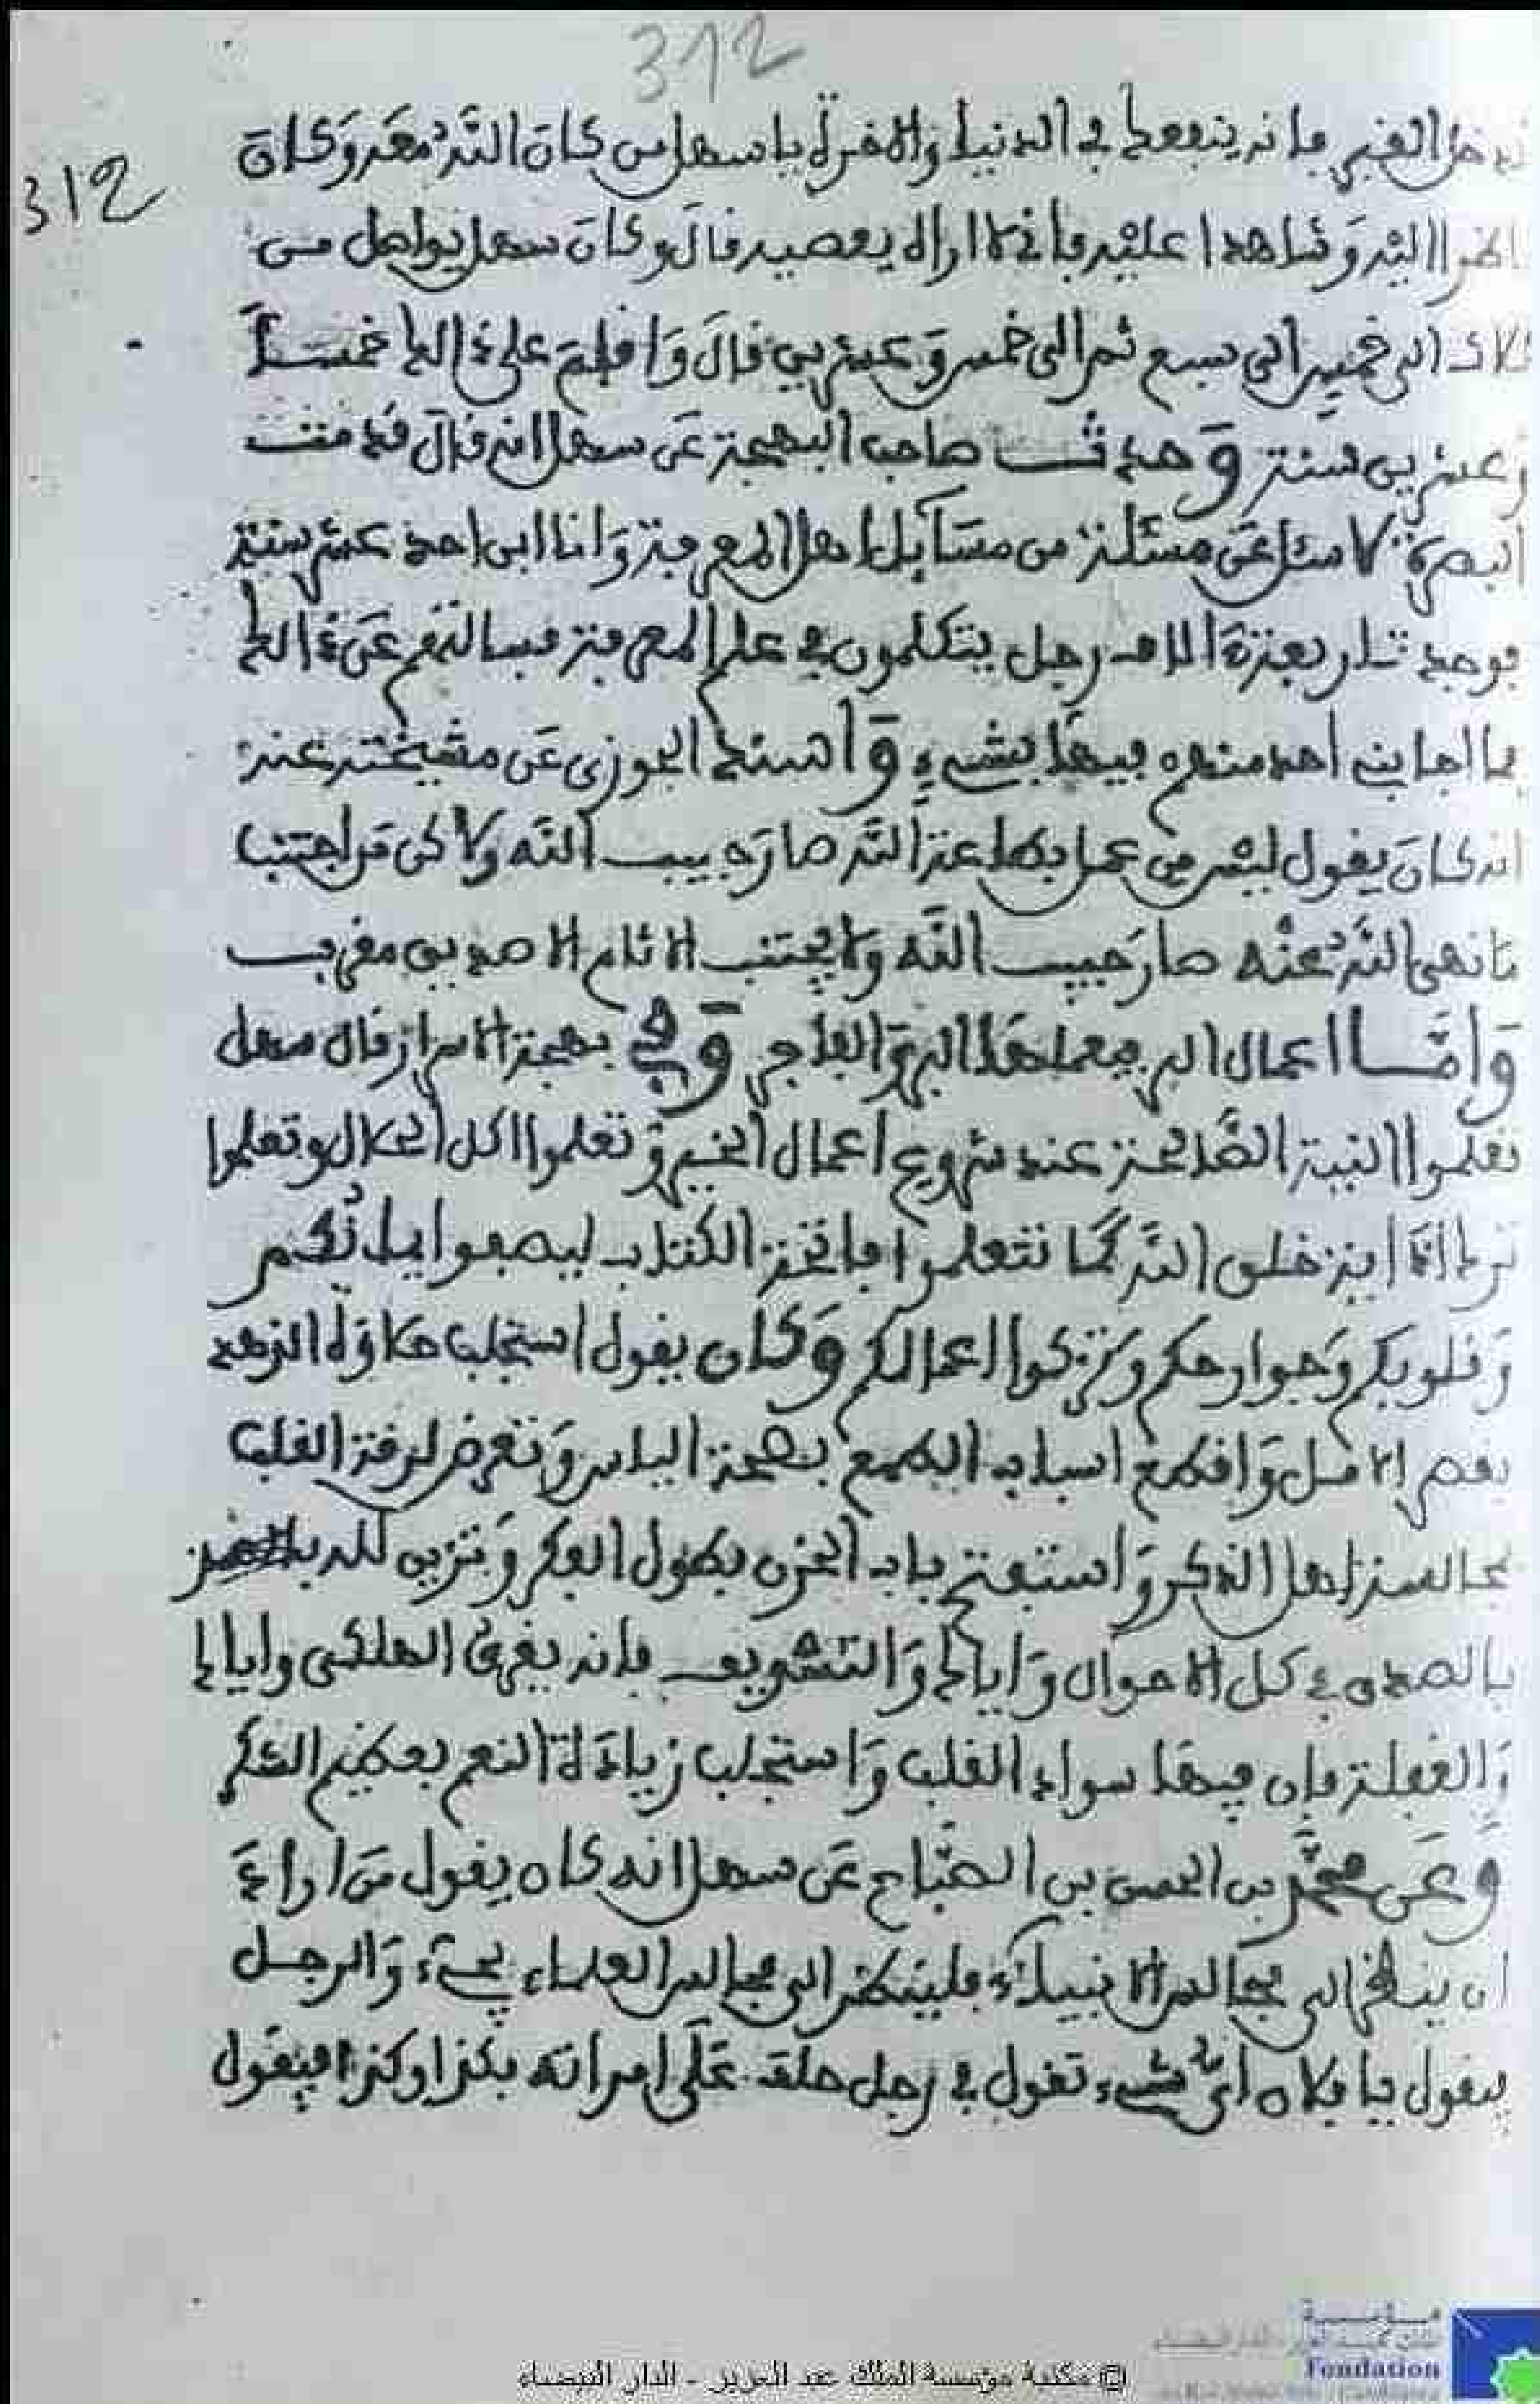 312
312
تدخل القبر فانه ينفعك في الدنيا والاخرة يا سهل من كان الله معه وكان
ناظرا اليه وشاهدا عليه فاذ لا اراه يعصيه قال وكان سهل يواصل من
ثلاث الى خمس الى سبع ثم الى خمس وعشرين قال واقام على ذالك خمسا
وعشرين سنة وحدث صاحب البهجة عن سهل انه قال قدمت
البصرة لاسئل عن مسئلة من مسائل اهل المعرفة وانا ابن احد عشر سنة
فوجدت اربعة الاف رجل يتكلمون في علم المعرفة فسالتهم عن ذالك
فما اجابني احد منهم فيها بشيء واسند الجوزي عن مشيخته عنه
انه كان يقول ليس من عمل بطاعة الله صار حبيب الله ولاكن من اجتنب
ما نهى الله عنه صار حبيب الله ولا يجتنب الاثام الا صديق مقرب
واما اعمال البر فيعملها البر والفاجر وفي بهجة الاسرار قال سهل
تعلموا النية الصالحة عند شروع اعمال الخير وتعلموا اكل الحلال وتعلموا
اذاية خلق الله كما تتعلموا فاتحة الكتاب ليصفوا ايمانكم
وقلوبكم وجوارحكم وتزكوا اعمالكم وكان يقول استجلب حلاوة الزهد
بقصر الامل واقطع اسباب الطمع بصحة الياس وتعرض لرقة القلب
بمجالسة اهل الذكر واستفتح باب الحزن بطول الفكر وتزين لله
بالصدق في كل الاحوال واياك والتسويف فانه يغرق الهلكى واياك
والغفلة فان فيها سواد القلب واستجلب زيادة النعم بعظيم الشكر
وعن محمد بن الحسن بن الصباح عن سهل انه كان يقول من اراد
ان ينظر الى مجالس الانبياء فلينظر الى مجالس العلماء يجيء الرجل
فيقول يا فلان اي شيء تقول في رجل حلف على امراته بكذا وكذا فيقول
مؤسسة
Fondation
© مكتبة مؤسسة الملك عبد العزيز - الدار البيضاء